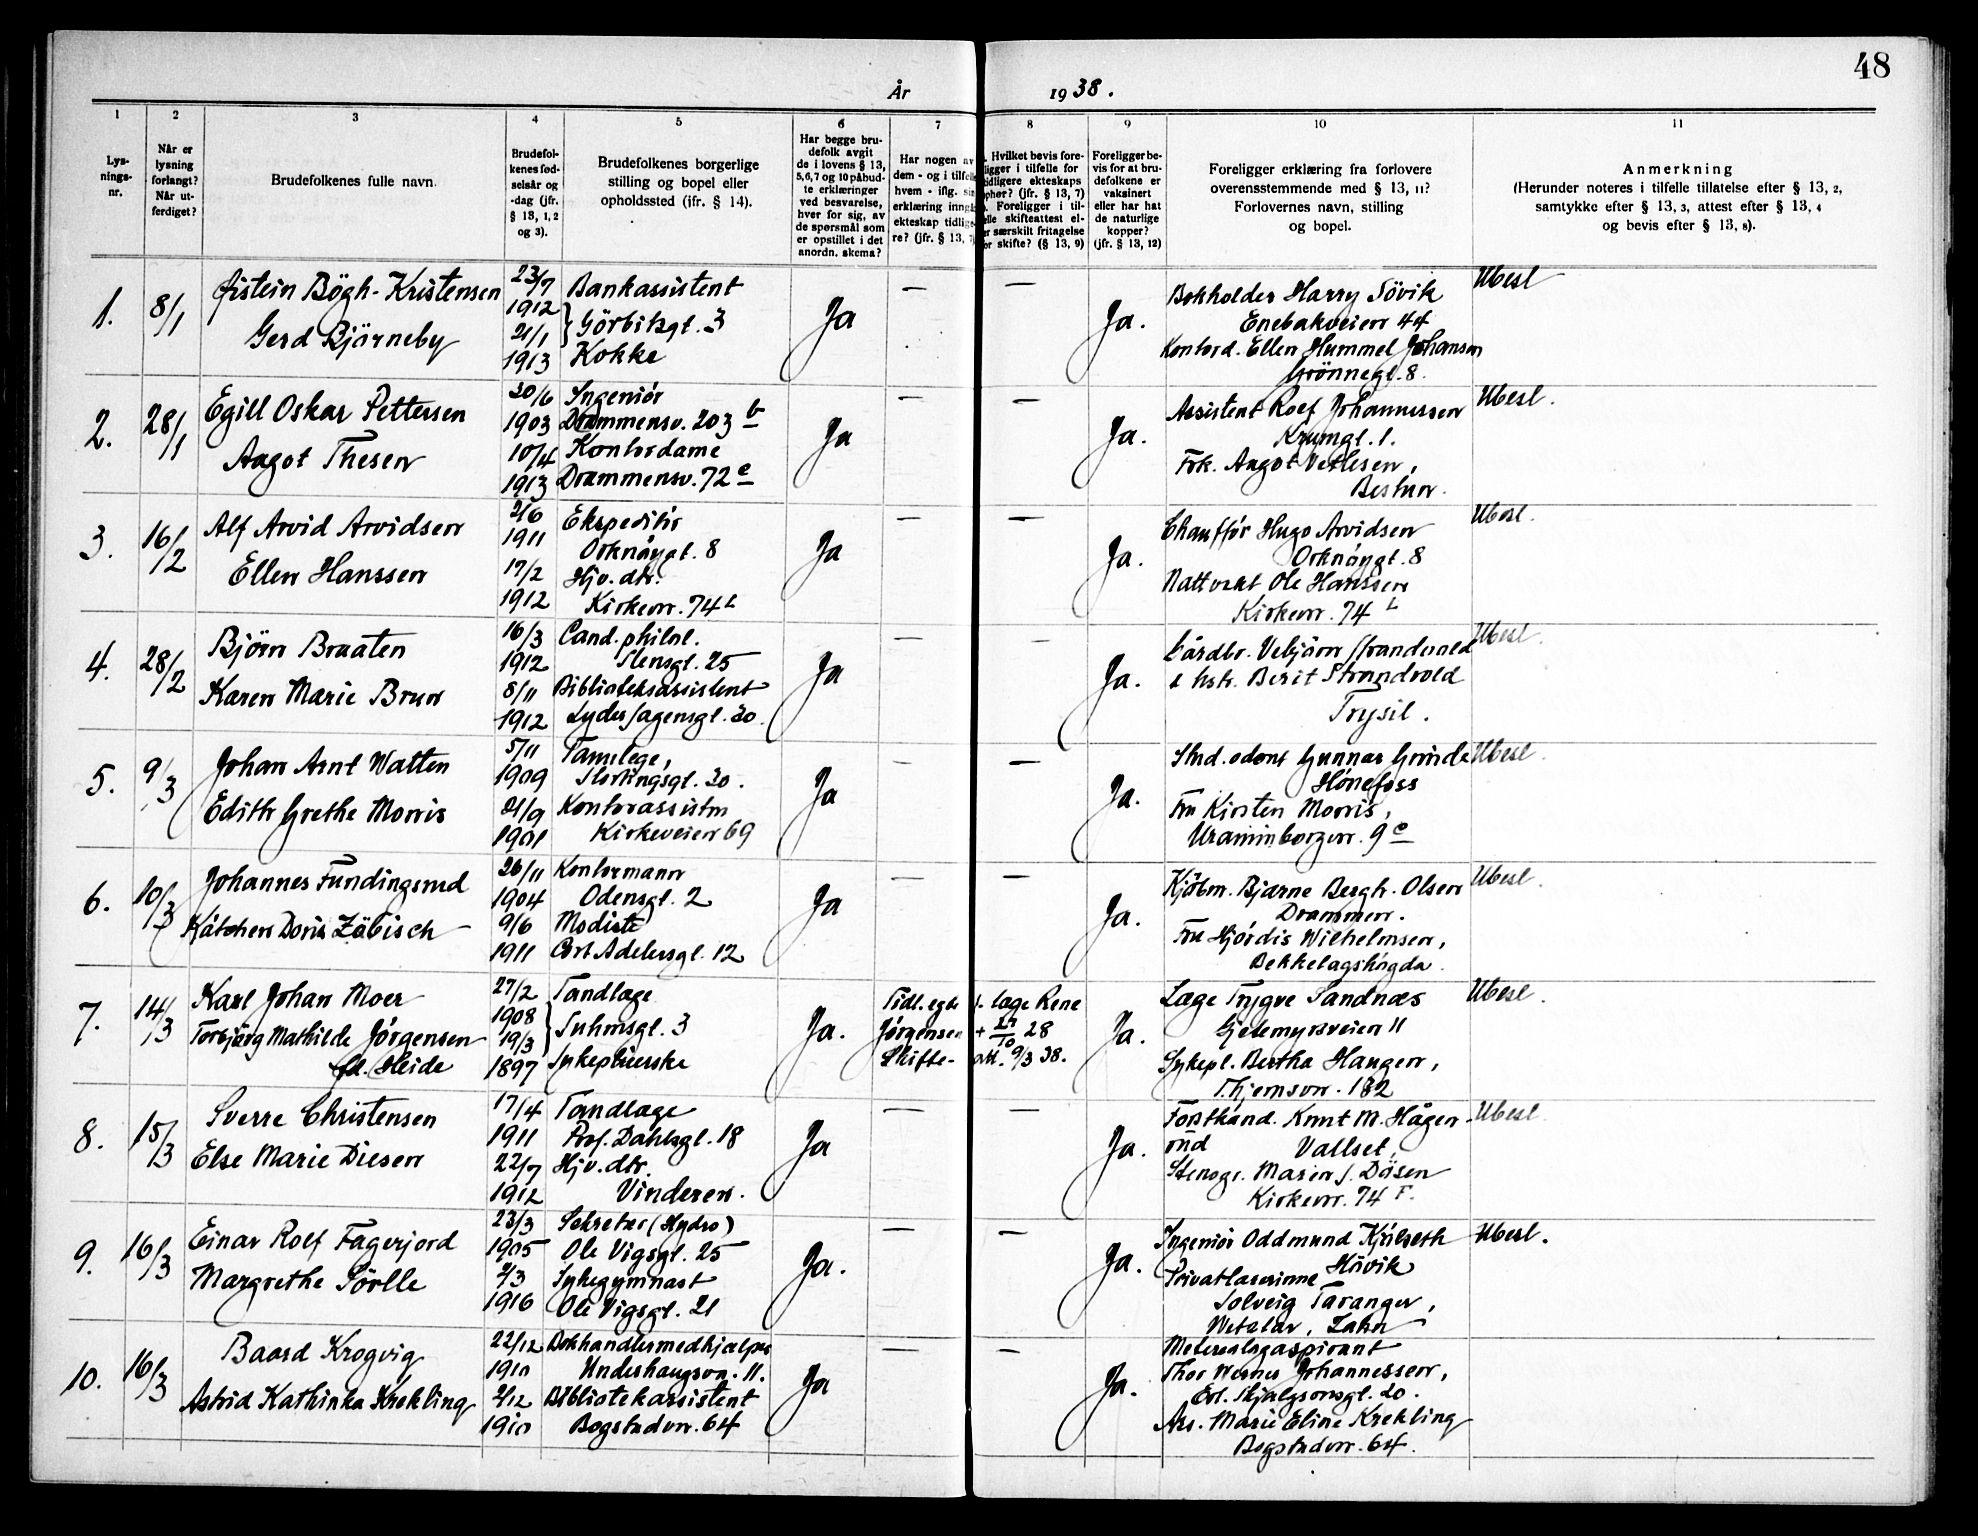 48
År 1938.
1 2 3 4 5 6 7 8 9 10 11
Lys-
nings-
nr.
Når er
lysning
forlangt?
Når ut-
ferdiget?
Brudefolkenes fulle navn.
Brudefol-
kenes fød-
selsår og
-dag (jfr.
§ 13, 1, 2
og 3).
Brudefolkenes borgerlige
stilling og bopel eller
opholdssted (ifr. § 14).
Har begge bru-
defolk avgit
de i lovens § 13,
5, 6, 7 og 10 påbud-
te erklæringer
ved besvarelse,
hver for sig, av
de spørsmål som
er opstillet i det
anordn. skema?
Har nogen av
dem - og i tilfelle
hvem - iflg. sin
erklæring inngå
ekteskap tidlige
re? (jfr. § 13, 7)
. Hvilket bevis fore-
ligger i tilfelle for
tidligere ekteskaps
ophør? (jfr. § 13, 7)
. Foreligger i til-
elle skifteattest el-
er særskilt fritagelse
or skifte? (§ 13, 9)
Foreligger be-
vis for at bru-
defolkene er
vaksinert
eller har hat
de naturlige
kopper?
(jfr. § 13, 12)
Foreligger erklæring fra forlovere
overensstemmende med § 13, 11?
Forlovernes navn, stilling
og bopel.
Anmerkning
(Herunder noteres i tilfelle tillatelse efter § 13, 2,
samtykke efter § 13, 3, attest efter § 13, 4
og bevis efter § 13, 8).
1. 8/1
Øistein Bögh-Kristensen
Gerd Björneby
23/7
1912
21/1
1913
Bankassistent
Görbitzgt. 3
Kokke
Ja — — Ja.
Bokholder Harry Sövik
Enebakveien 44
Kontord. Ellen Hummel Johansen
Grönnegt. 8.
Ubesl
2. 28/1
Egill Oskar Pettersen
Aagot Thesen
20/6
1903
10/4
1913
Ingeniör
Drammensv. 203 b
Kontordame
Drammensv. 72 c
Ja — — Ja.
Assistent Rolf Johannessen
Krumgt. 1.
Frk. Aagot Vetlesen,
Bestun.
Ubesl.
3. 16/2
Alf Arvid Arvidsen
Ellen Hanssen
2/6
1911
17/2
1912
Ekspeditör
Orknöygt. 8
Hjv. dtr.
Kirkevn. 74 L
Ja — — Ja.
Chauffør Hugo Arvidsen
Orknöygt. 8
Nattvakt Ole Hanssen
Kirkevn. 74 L
Ubesl.
4. 28/2
Björn Braaten
Karen Marie Brun
16/3
1912
8/11
1912
Cand. philol.
Stensgt. 25
Biblioteksassistent
Lyder Sagensgt. 20.
Ja — — Ja.
Gårdbr. Vebjörn Strandvold
& hstr. Berit Strandvold
Trysil.
Ubesl.
5. 9/3
Johan Arnt Watten
Edith Grethe Morris
5/11
1909
21/9
1901
Tannlege,
Stortingsgt. 20.
Kontorassistn
Kirkeveien 69
Ja — — Ja.
Stud. odont Gunnar Grinde
Hönefoss
Fru Kirsten Morris,
Uranienborgvn. 9 c
Ubesl.
6. 10/3
Johannes Fundingsrud
Kätchen Doris Zäbisch
26/11
1904
9/6
1911
Kontormann
Odensgt. 2
Modiste
Cort Adelersgt. 12
Ja — — Ja.
Kjöbm. Bjarne Bergh-Olsen
Drammen.
Fru Hjördis Wilhelmsen,
Bekkelagshögda.
Ubesl.
7. 14/3
Karl Johan Moer
Torbjørg Mathilde Jörgensen
fd. Heide
27/2
1908
19/3
1897
Tandlæge
Suhmsgt. 3
Sykepleierske
Ja.
Tidl. egte d. læge Rene
Jørgensen + 27/10 28
Skifte- att. 9/3 38.
Ja.
Læge Trygve Sandnæs
Gjetemyrsveien 11
Sykepl. Bertha Haugen,
Thjemsvn. 182
Ubesl.
8. 15/3
Sverre Christensen
Else Marie Diesen
17/4
1911
22/7
1912
Tandlæge
Prof. Dahlsgt. 18
Hjv. dtr.
Vinderen.
Ja — — Ja.
Forstkand. Knut M. Hågen-
rud Vallset,
Stenogr. Maren J. Dösen
Kirkevn. 74 F.
Ubesl.
9. 16/3
Einar Rolf Fagerjord
Margrethe Sörlle
23/3
1905
2/3
1916
Sekretær (Hydro)
Ole Vigsgt. 25
Sykegymnast
Ole Vigsgt. 21
Ja. — — Ja.
Ingeniør Oddmund Kjölseth
Hövik
Privatlærerinne
Solveig Taranger,
Wetzlar, Lahn
Ubesl.
10. 16/3
Baard Krogvig
Astrid Kathinka Krekling
22/12
1910
2/12
1910
Bokhandlermedhjælper
Underhaugsvn. 11.
Bibliotekassistent
Bogstadvn. 64
Ja — — Ja.
Meterologaspirant
Thor Werner Johannessen,
Erl. Skjalgsonsgt. 20.
Ass. Marie Eline Krekling
Bogstadvn. 64.